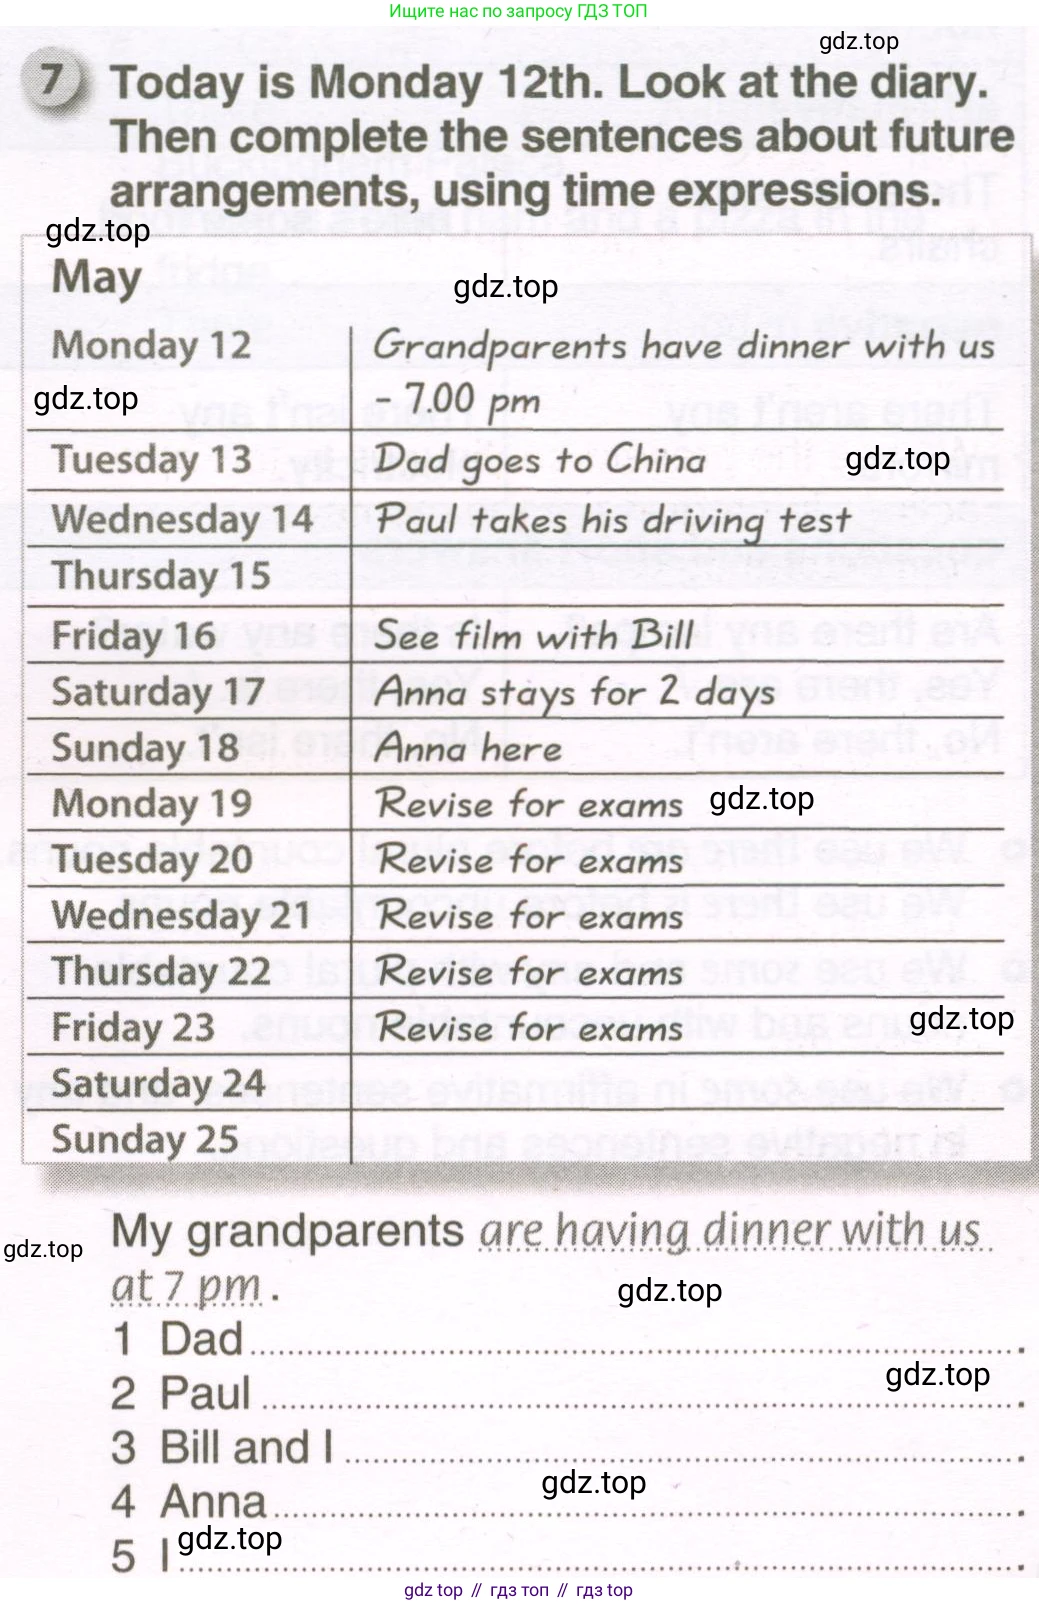 Ищите нас по запросу ГДЗ ТОП
gdz.top
7 Today is Monday 12th. Look at the diary.
Then complete the sentences about future
arrangements, using time expressions.
gdz.top
May
gdz.top
Monday 12 Grandparents have dinner with us
gdz.top - 7.00 pm
Tuesday 13 Dad goes to China gdz.top
Wednesday 14 Paul takes his driving test
Thursday 15
Friday 16 See film with Bill
Saturday 17 Anna stays for 2 days
Sunday 18 Anna here
Monday 19 Revise for exams gdz.top
Tuesday 20 Revise for exams
Wednesday 21 Revise for exams
Thursday 22 Revise for exams
Friday 23 Revise for exams gdz.top
Saturday 24
Sunday 25
My grandparents are having dinner with us
gdz.top
at 7 pm.
gdz.top
1 Dad ........
gdz.top
2 Paul ........
3 Bill and I ........
gdz.top
4 Anna ........
gdz.top
5 I ........
gdz top // гдз топ // gdz.top